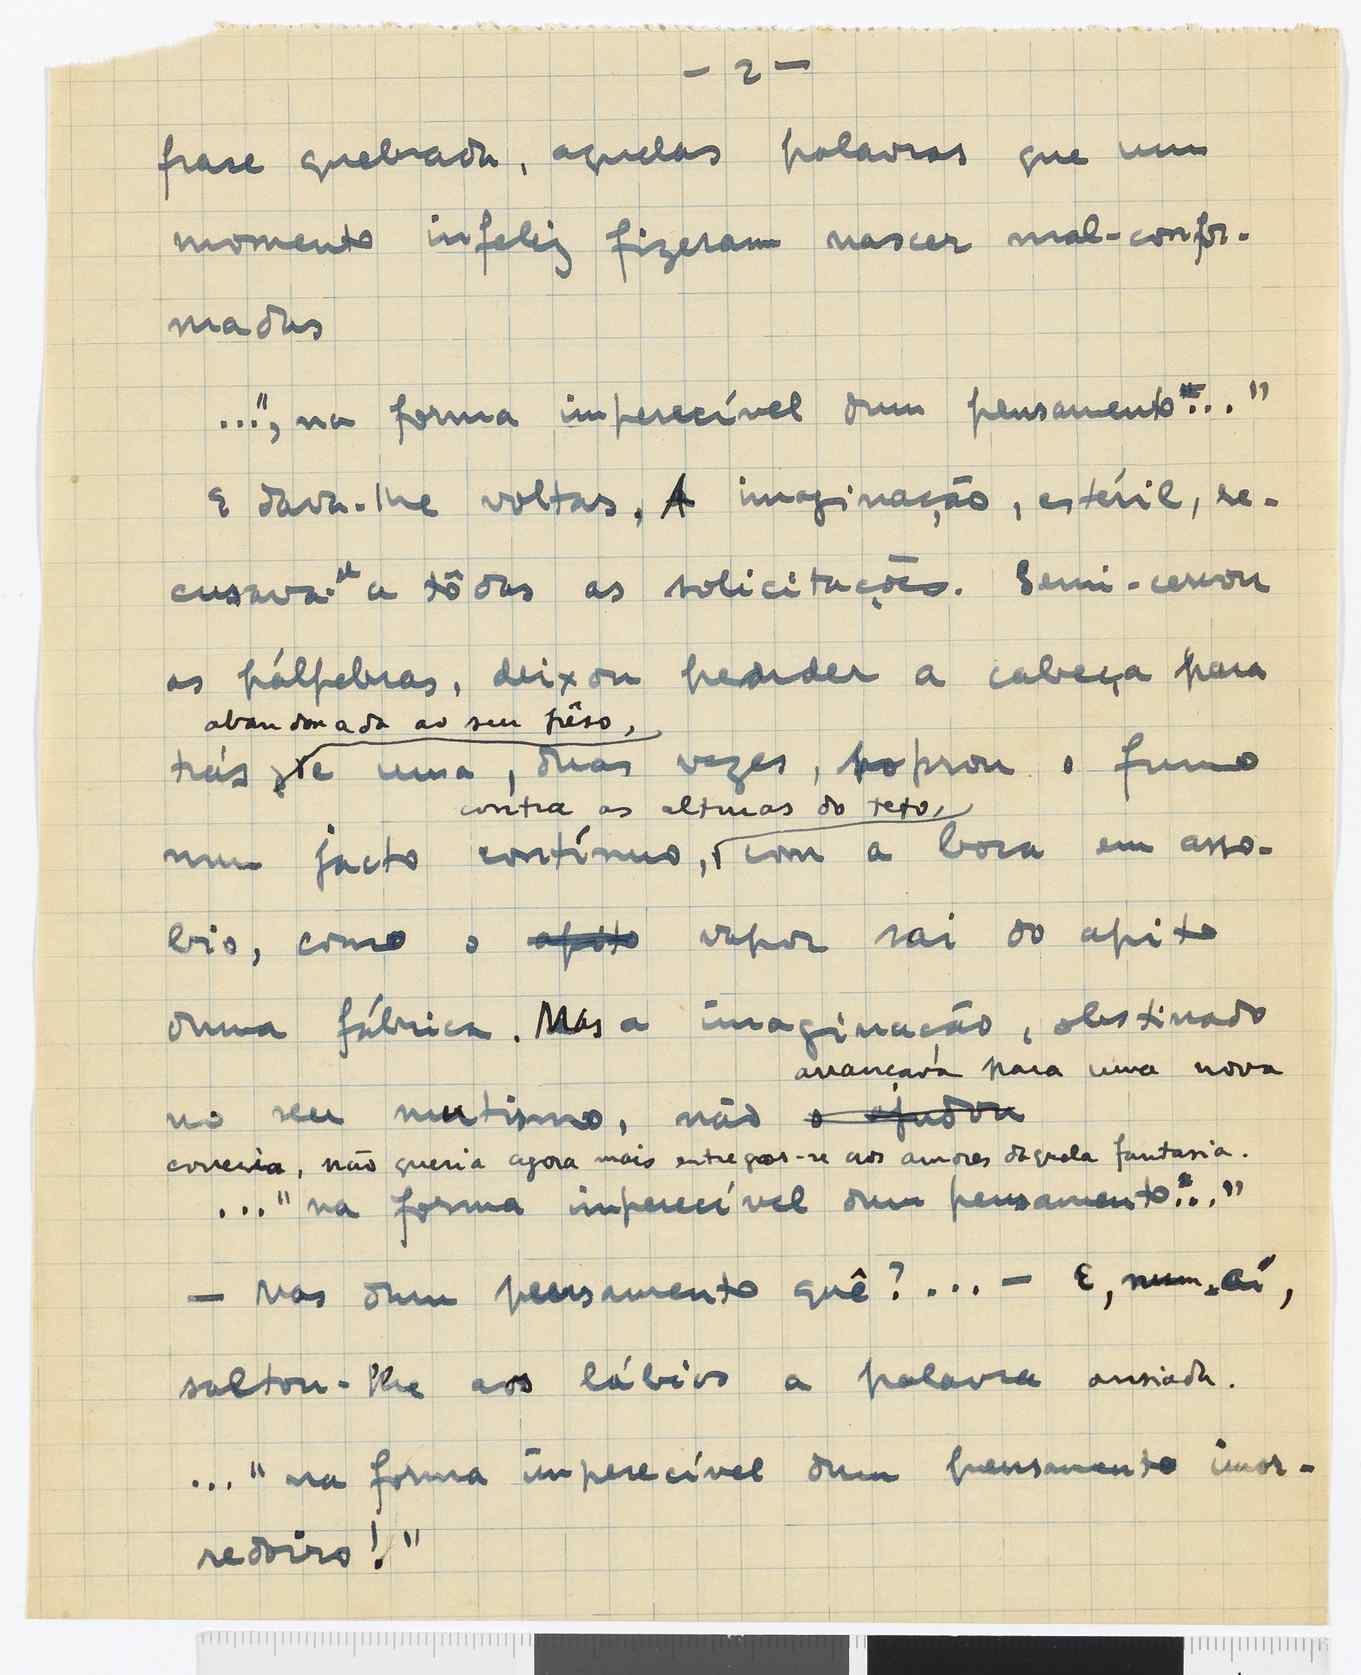 - 2 -
frase quebrada, aquelas palavras que um
momento infeliz fizeram nascer mal-confor-
madas
...", na forma imperecível dum pensamento..."
E dava-lhe voltas. A imaginação, estéril, re-
cusava-se a tôdas as solicitações. Semi-cerrou
as pálpebras, deixou pender a cabeça para
abandonada ao seu pêso,
trás e uma, duas vezes, soprou o fumo
contra as alturas do teto,
num jacto contínuo, com a boca em asso-
bio, como o apito vapor sai do apito
duma fábrica. Mas a imaginação, obstinado
no seu mutismo, não o ajudou
arrancava para uma nova
correria, não queria agora mais entregar-se aos amores daquela fantasia.
..."na forma imperecível dum pensamento..."
- Mas dum pensamento quê?... - E, num aí,
saltou-lhe aos lábios a palavra ansiada.
..."na forma imperecível dum pensamento imor-
redoiro!"